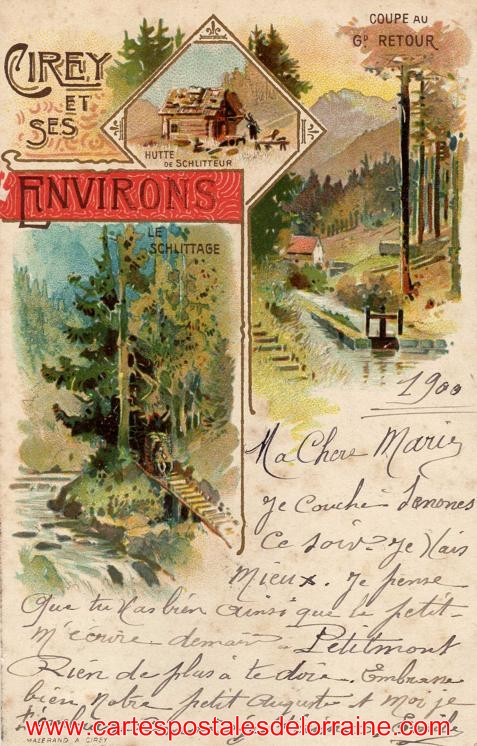 CIREY
ET
SES
ENVIRONS
HUTTE
DE SCHLITTEUR
COUPE AU
GD RETOUR
LE
SCHLITTAGE
1900
Ma Chere Marie
Je Couche
Ce soir? Je Vais
Mieux. Je pense
Que tu Vas bien ainsi que le petit
M'écrire demain Petitmont
Rien de plus à te dire. Embrasse
bien notre petit Auguste et moi je
www.cartespostalesdelorraine.com
MAZERAND A CIREY